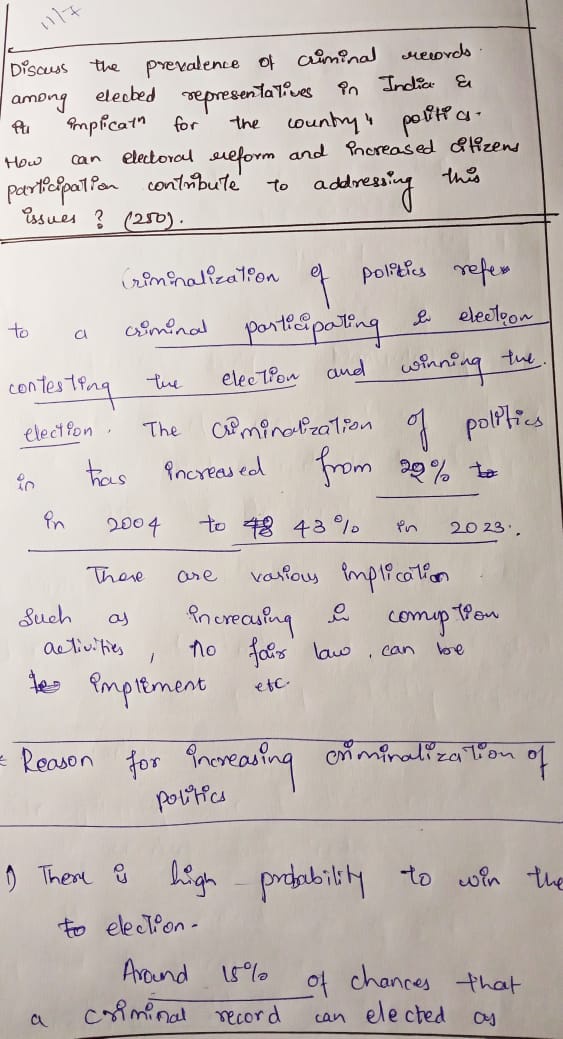 11/7
Discuss the prevalence of criminal records
among elected representatives in India &
its implicatn for the country's politics.
How can electoral reform and increased citizens
participation contribute to addressing this
issues ? (250).
Criminalization of politics refer
to a criminal participating & election
contesting the election and winning the
election. The Criminalization of politics
in has increased from 29%
in 2004 to 43% in 2023.
There are various implication
such as increasing corruption
activities, no fair law, can be
implement etc.
Reason for increasing criminalization of
politics
1) There is high probability to win the
to election-
Around 15% of chances that
a criminal record can elected as